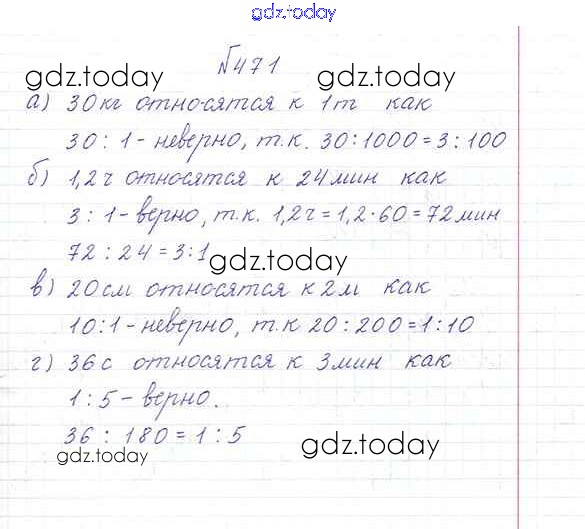 gdz.today
№471
gdz.today gdz.today
а) 30кг относятся к 1т как
30 : 1 - неверно, т.к. 30:1000=3:100
б) 1,2ч относятся к 24мин как
3 : 1 - верно, т.к. 1,2ч=1,2·60=72мин
72 : 24 = 3:1
gdz.today
в) 20см относятся к 2м как
10:1 - неверно, т.к 20:200=1:10
г) 36с относятся к 3мин как
1 : 5 - верно.
36 : 180 = 1 : 5
gdz.today gdz.today